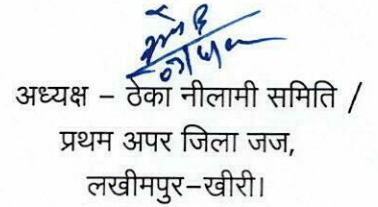 अध्यक्ष – ठेका नीलामी समिति /
प्रथम अपर जिला जज,
लखीमपुर–खीरी।